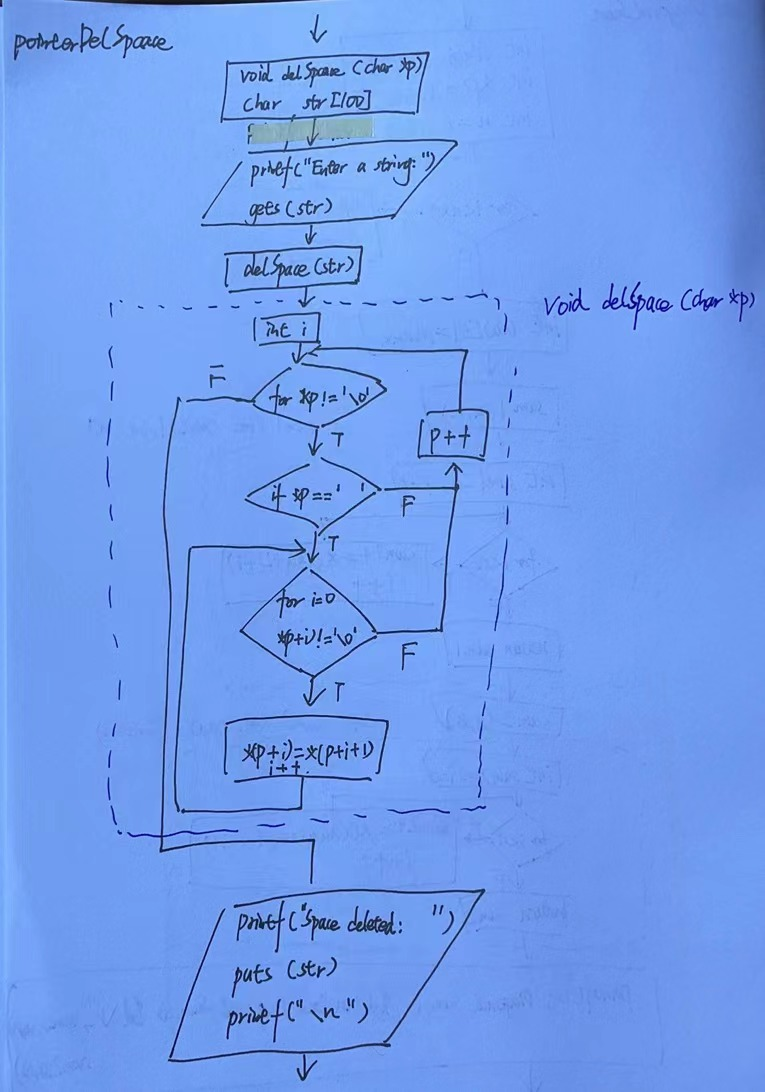 pointerDelSpace
void delSpace (char *p)
char str [100]
printf("Enter a string:")
gets (str)
delSpace (str)
void delSpace (char *p)
int i
for *p!='\0'
F
T
p++
if *p==' '
F
T
for i=0
*p+i)!='\0'
F
T
*(p+i)=*(p+i+1)
i++
printf("Space deleted: ")
puts (str)
printf("\n")